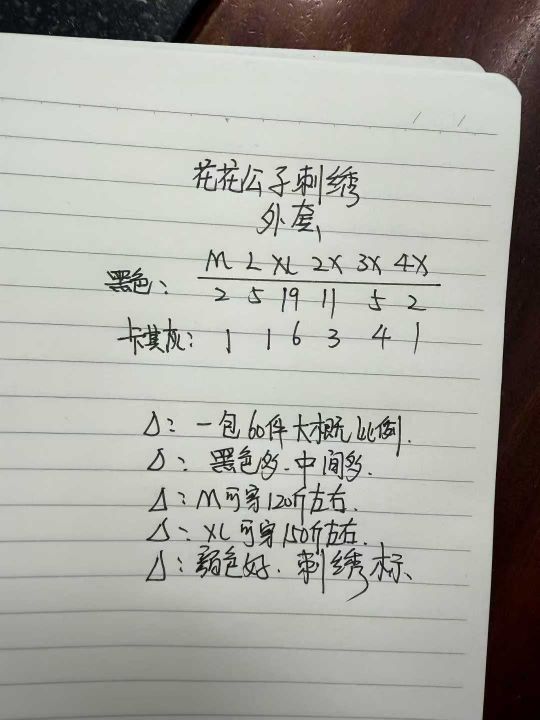 花花公子刺绣
外套
M L XL 2X 3X 4X
黑色: 2 5 19 11 5 2
卡其灰: 1 1 6 3 4 1
△: 一包60件大概比例.
△: 黑色多.中间多.
△: M可穿120斤左右.
△: XL可穿150斤左右.
△: 颜色好.刺绣标